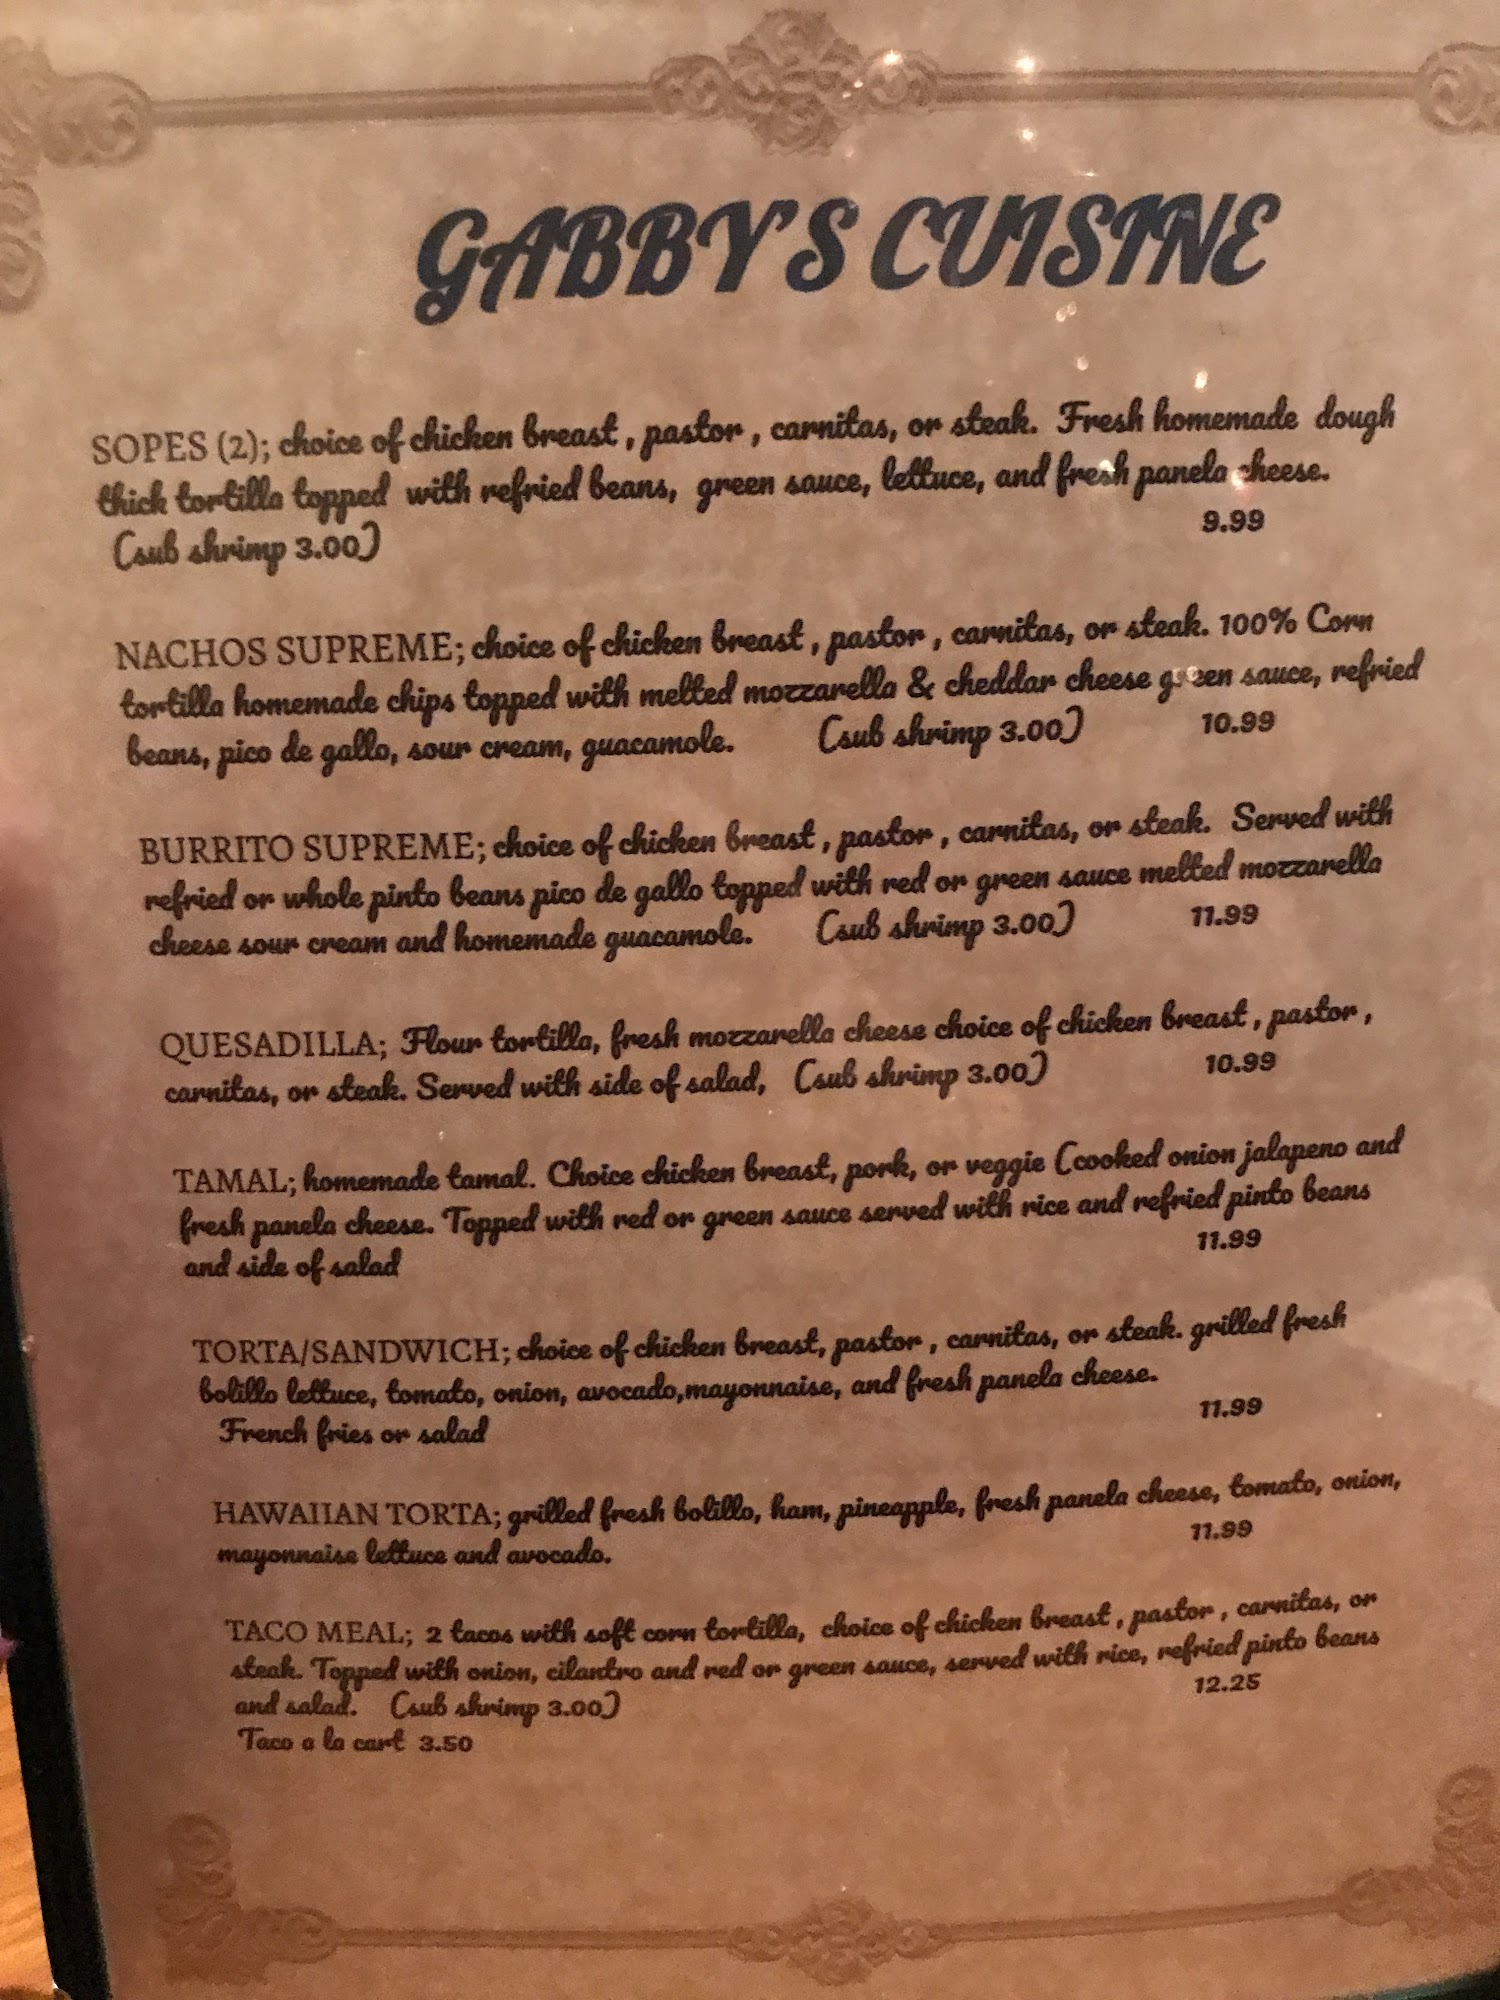 GABBY'S CUISINE
SOPES (2); choice of chicken breast , pastor , carnitas, or steak. Fresh homemade dough
thick tortilla topped with refried beans, green sauce, lettuce, and fresh panela cheese.
(sub shrimp 3.00) 9.99
NACHOS SUPREME; choice of chicken breast , pastor , carnitas, or steak. 100% Corn
tortilla homemade chips topped with melted mozzarella & cheddar cheese green sauce, refried
beans, pico de gallo, sour cream, guacamole. (sub shrimp 3.00) 10.99
BURRITO SUPREME; choice of chicken breast , pastor , carnitas, or steak. Served with
refried or whole pinto beans pico de gallo topped with red or green sauce melted mozzarella
cheese sour cream and homemade guacamole. (sub shrimp 3.00) 11.99
QUESADILLA; Flour tortilla, fresh mozzarella cheese choice of chicken breast , pastor ,
carnitas, or steak. Served with side of salad, (sub shrimp 3.00) 10.99
TAMAL; homemade tamal. Choice chicken breast, pork, or veggie (cooked onion jalapeno and
fresh panela cheese. Topped with red or green sauce served with rice and refried pinto beans
and side of salad 11.99
TORTA/SANDWICH; choice of chicken breast, pastor , carnitas, or steak. grilled fresh
bolillo lettuce, tomato, onion, avocado,mayonnaise, and fresh panela cheese.
French fries or salad 11.99
HAWAIIAN TORTA; grilled fresh bolillo, ham, pineapple, fresh panela cheese, tomato, onion,
mayonnaise lettuce and avocado. 11.99
TACO MEAL; 2 tacos with soft corn tortilla, choice of chicken breast , pastor , carnitas, or
steak. Topped with onion, cilantro and red or green sauce, served with rice, refried pinto beans
and salad. (sub shrimp 3.00) 12.25
Taco a la cart 3.50